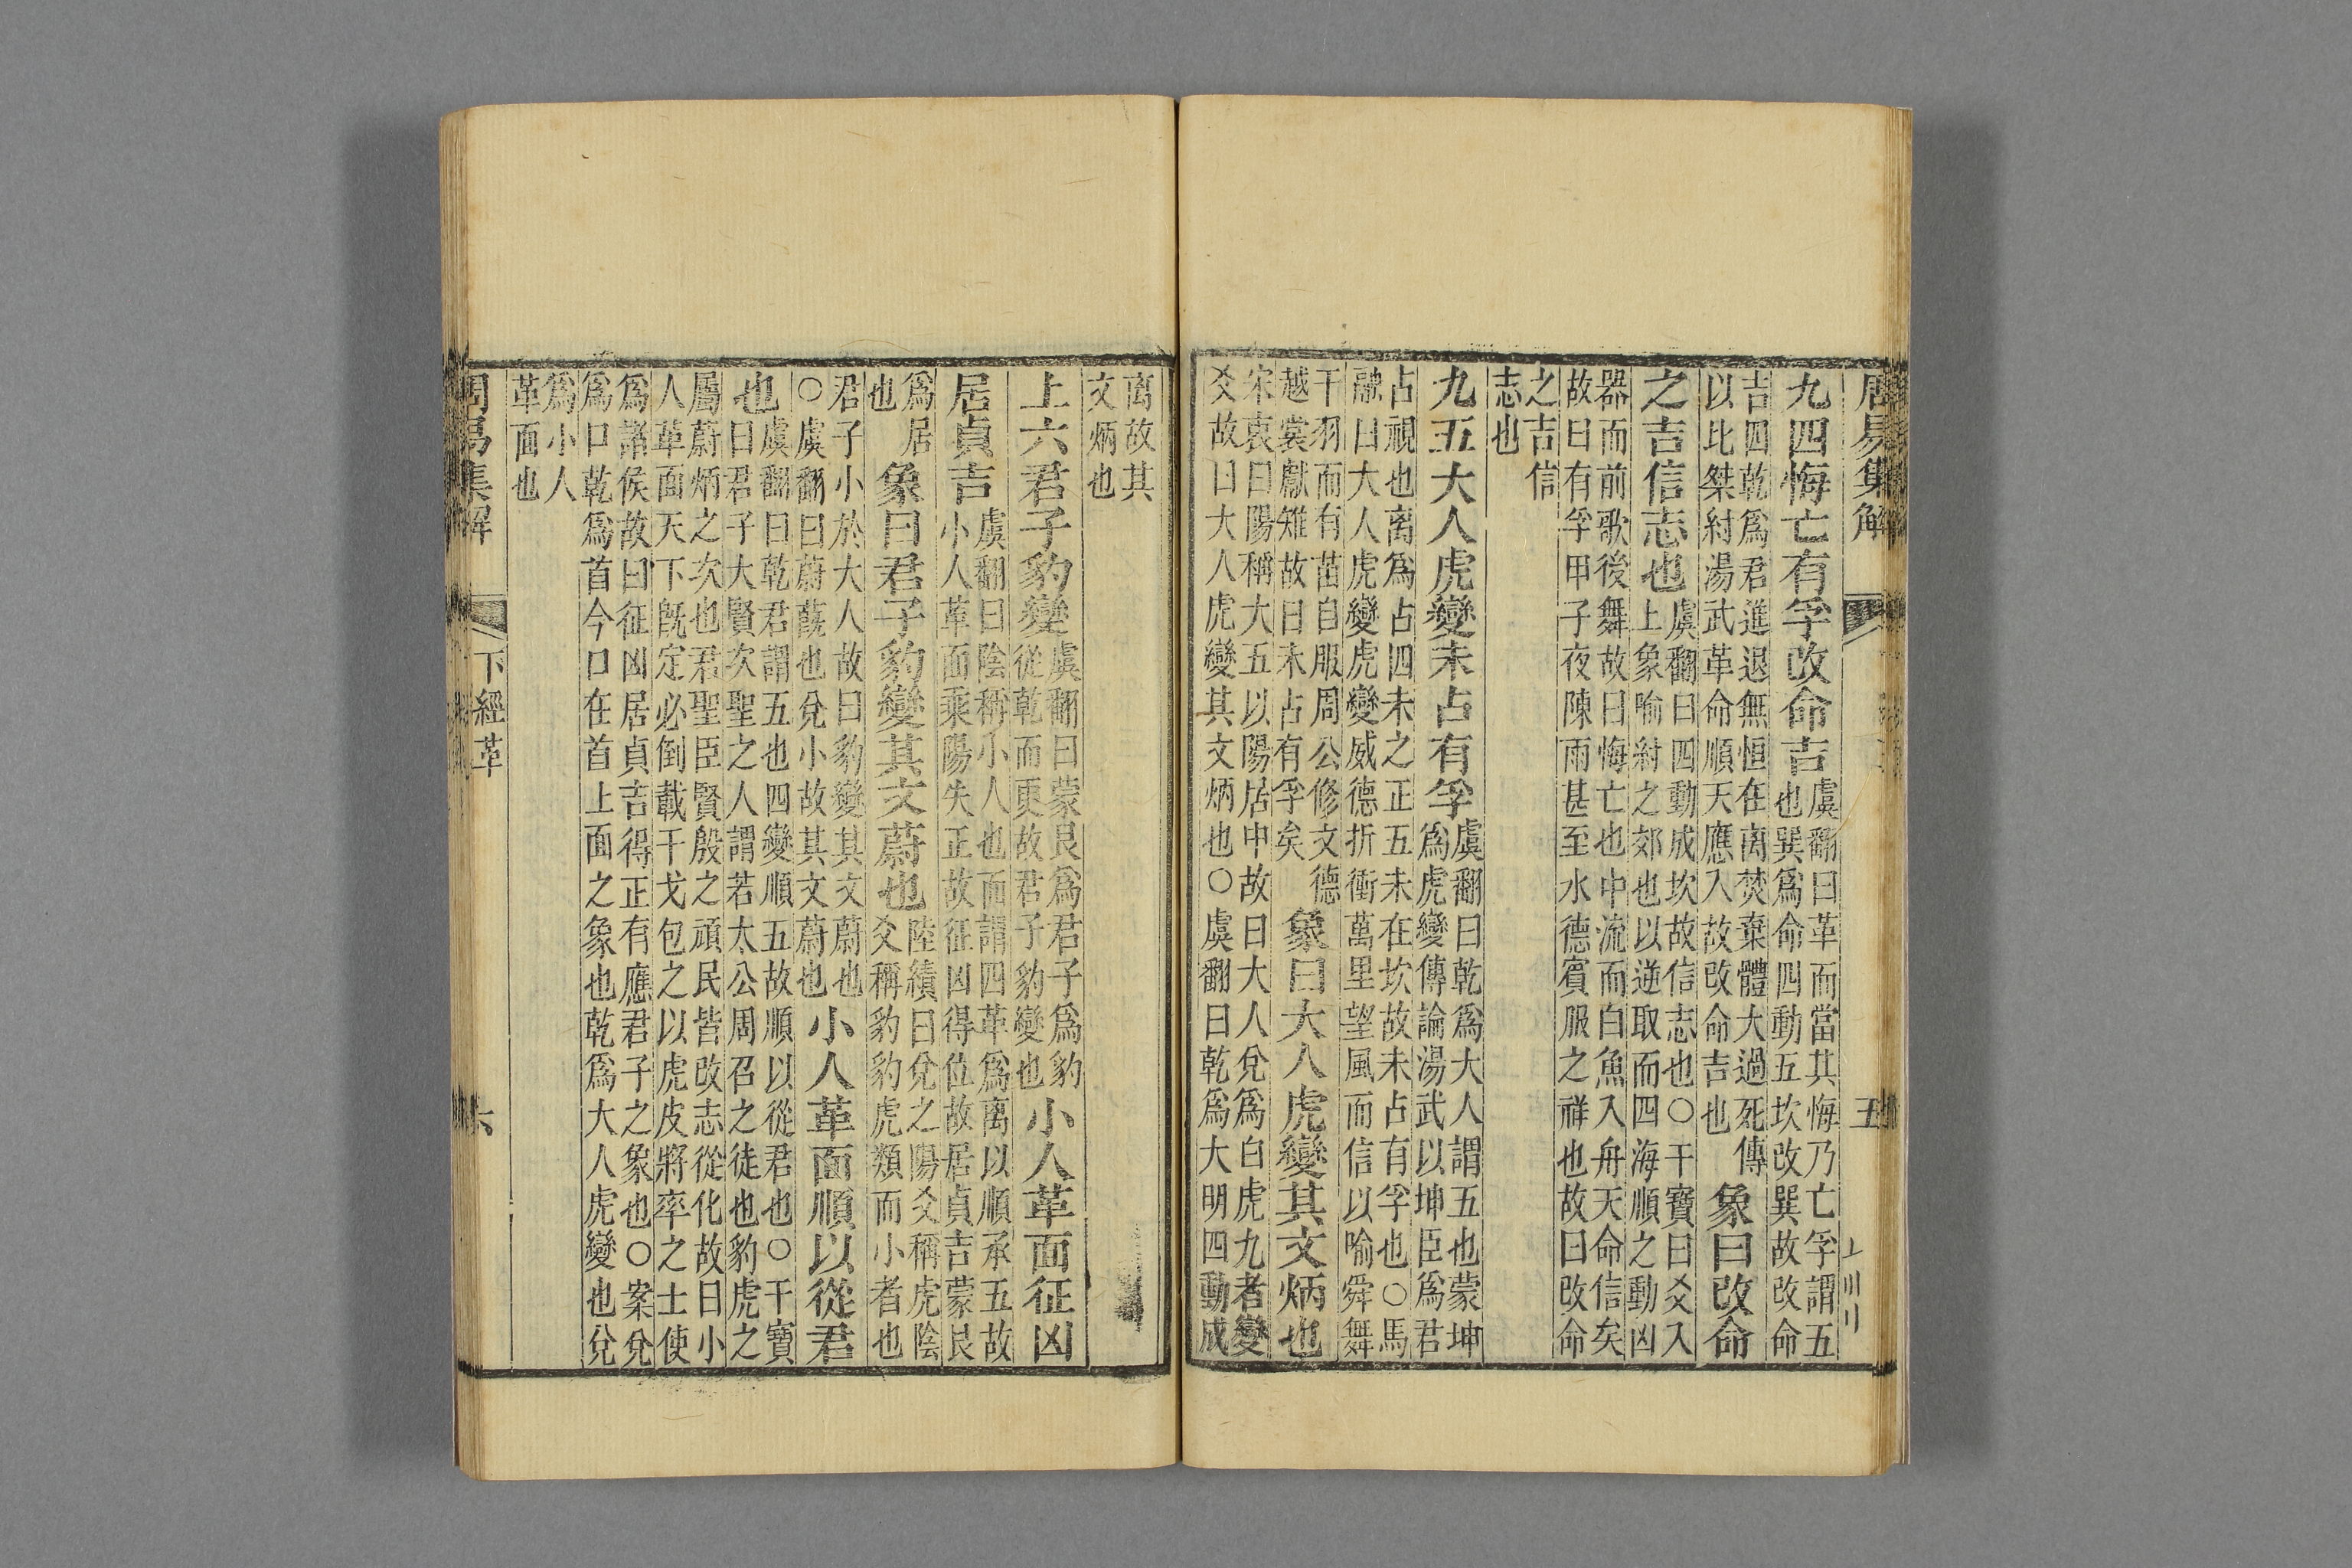 周易集解　五
九四悔亡有孚改命吉
虞翻曰革而當其悔乃亡孚謂五
也巽爲命四動五坎改巽故改命
吉四乾爲君進退無恒在离焚棄體大過死傳
以比桀紂湯武革命順天應入故改命吉也
象曰改命
之吉信志也
虞翻曰四動成坎故信志也○干寶曰爻入
上象喻紂之郊也以逆取而四海順之動凶
器而前歌後舞故曰悔亡也中流而白魚入舟天命信矣
故曰有孚甲子夜陳雨甚至水德賓服之祥也故曰改命
之吉信
志也
九五大人虎變未占有孚
虞翻曰乾爲大人謂五也蒙坤
爲虎變傳論湯武以坤臣爲君
占視也离爲占四未之正五未在坎故未占有孚也○馬
融曰大人虎變虎變威德折衝萬里望風而信以喻舜舞
干羽而有苗自服周公修文德
越裳獻雉故曰未占有孚矣
象曰大人虎變其文炳也
宋衷曰陽稱大五以陽居中故曰大人兌爲白虎九者變
爻故曰大人虎變其文炳也○虞翻曰乾爲大明四動成
离故其
文炳也
上六君子豹變
虞翻曰蒙艮爲君子爲豹
從乾而更故君子豹變也
小人革面征凶
居貞吉
虞翻曰陰稱小人也面謂四革爲离以順承五故
小人革面乘陽失正故征凶得位故居貞吉蒙艮
爲居
也
象曰君子豹變其文蔚也
陸績曰兌之陽爻稱虎陰
爻稱豹豹虎類而小者也
君子小於大人故曰豹變其文蔚也
○虞翻曰蔚蔇也兌小故其文蔚也
小人革面順以從君
也
虞翻曰乾君謂五也四變順五故順以從君也○干寶
曰君子大賢次聖之人謂若太公周召之徒也豹虎之
屬蔚炳之次也君聖臣賢殷之頑民皆改志從化故曰小
人革面天下既定必倒載干戈包之以虎皮將率之士使
爲諸侯故曰征凶居貞吉得正有應君子之象也○案兌
爲口乾爲首今口在首上面之象也乾爲大人虎變也兌
爲小人
革面也
周易集解　下經革　六